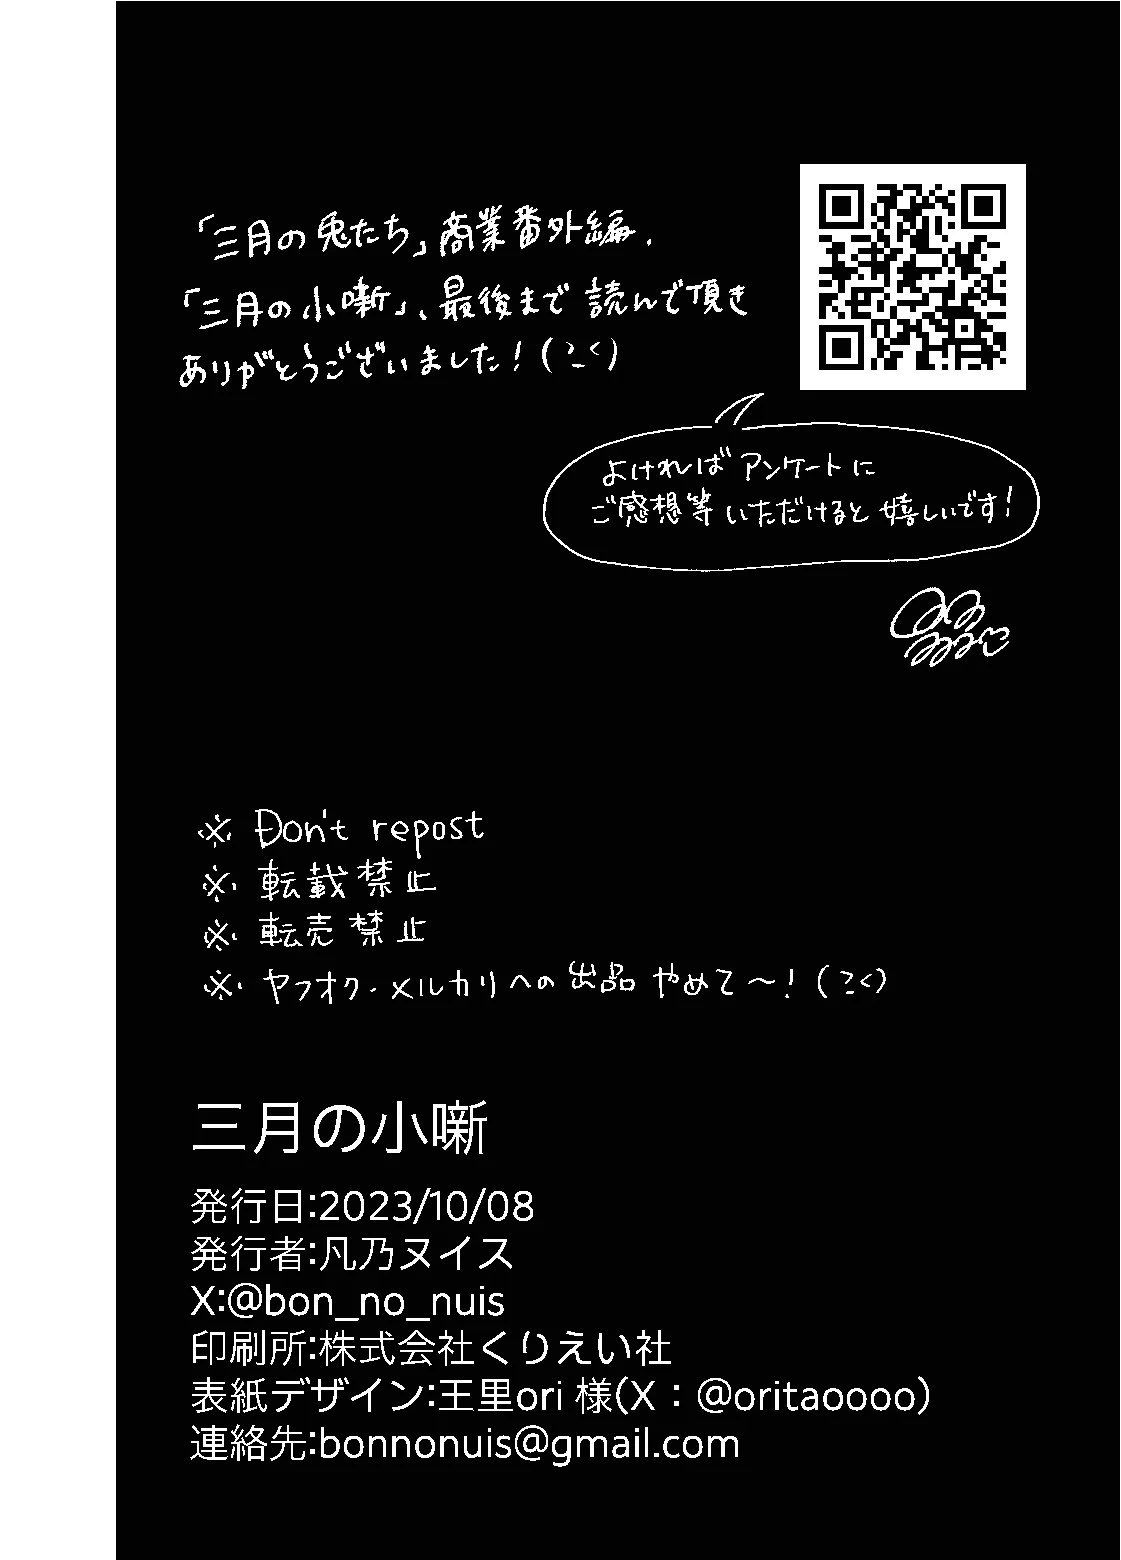 「三月の兎たち」商業番外編、
「三月の小噺」、最後まで読んで頂き
ありがとうございました！(こく)
よければアンケートに
ご感想等いただけると嬉しいです！
※ Don't repost
※ 転載禁止
※ 転売禁止
※ ヤフオク・メルカリへの出品やめて〜！(こく)
三月の小噺
発行日:2023/10/08
発行者:凡乃ヌイス
X:@bon_no_nuis
印刷所:株式会社くりえい社
表紙デザイン:王里ori 様(X：@oritaoooo)
連絡先:bonnonuis@gmail.com